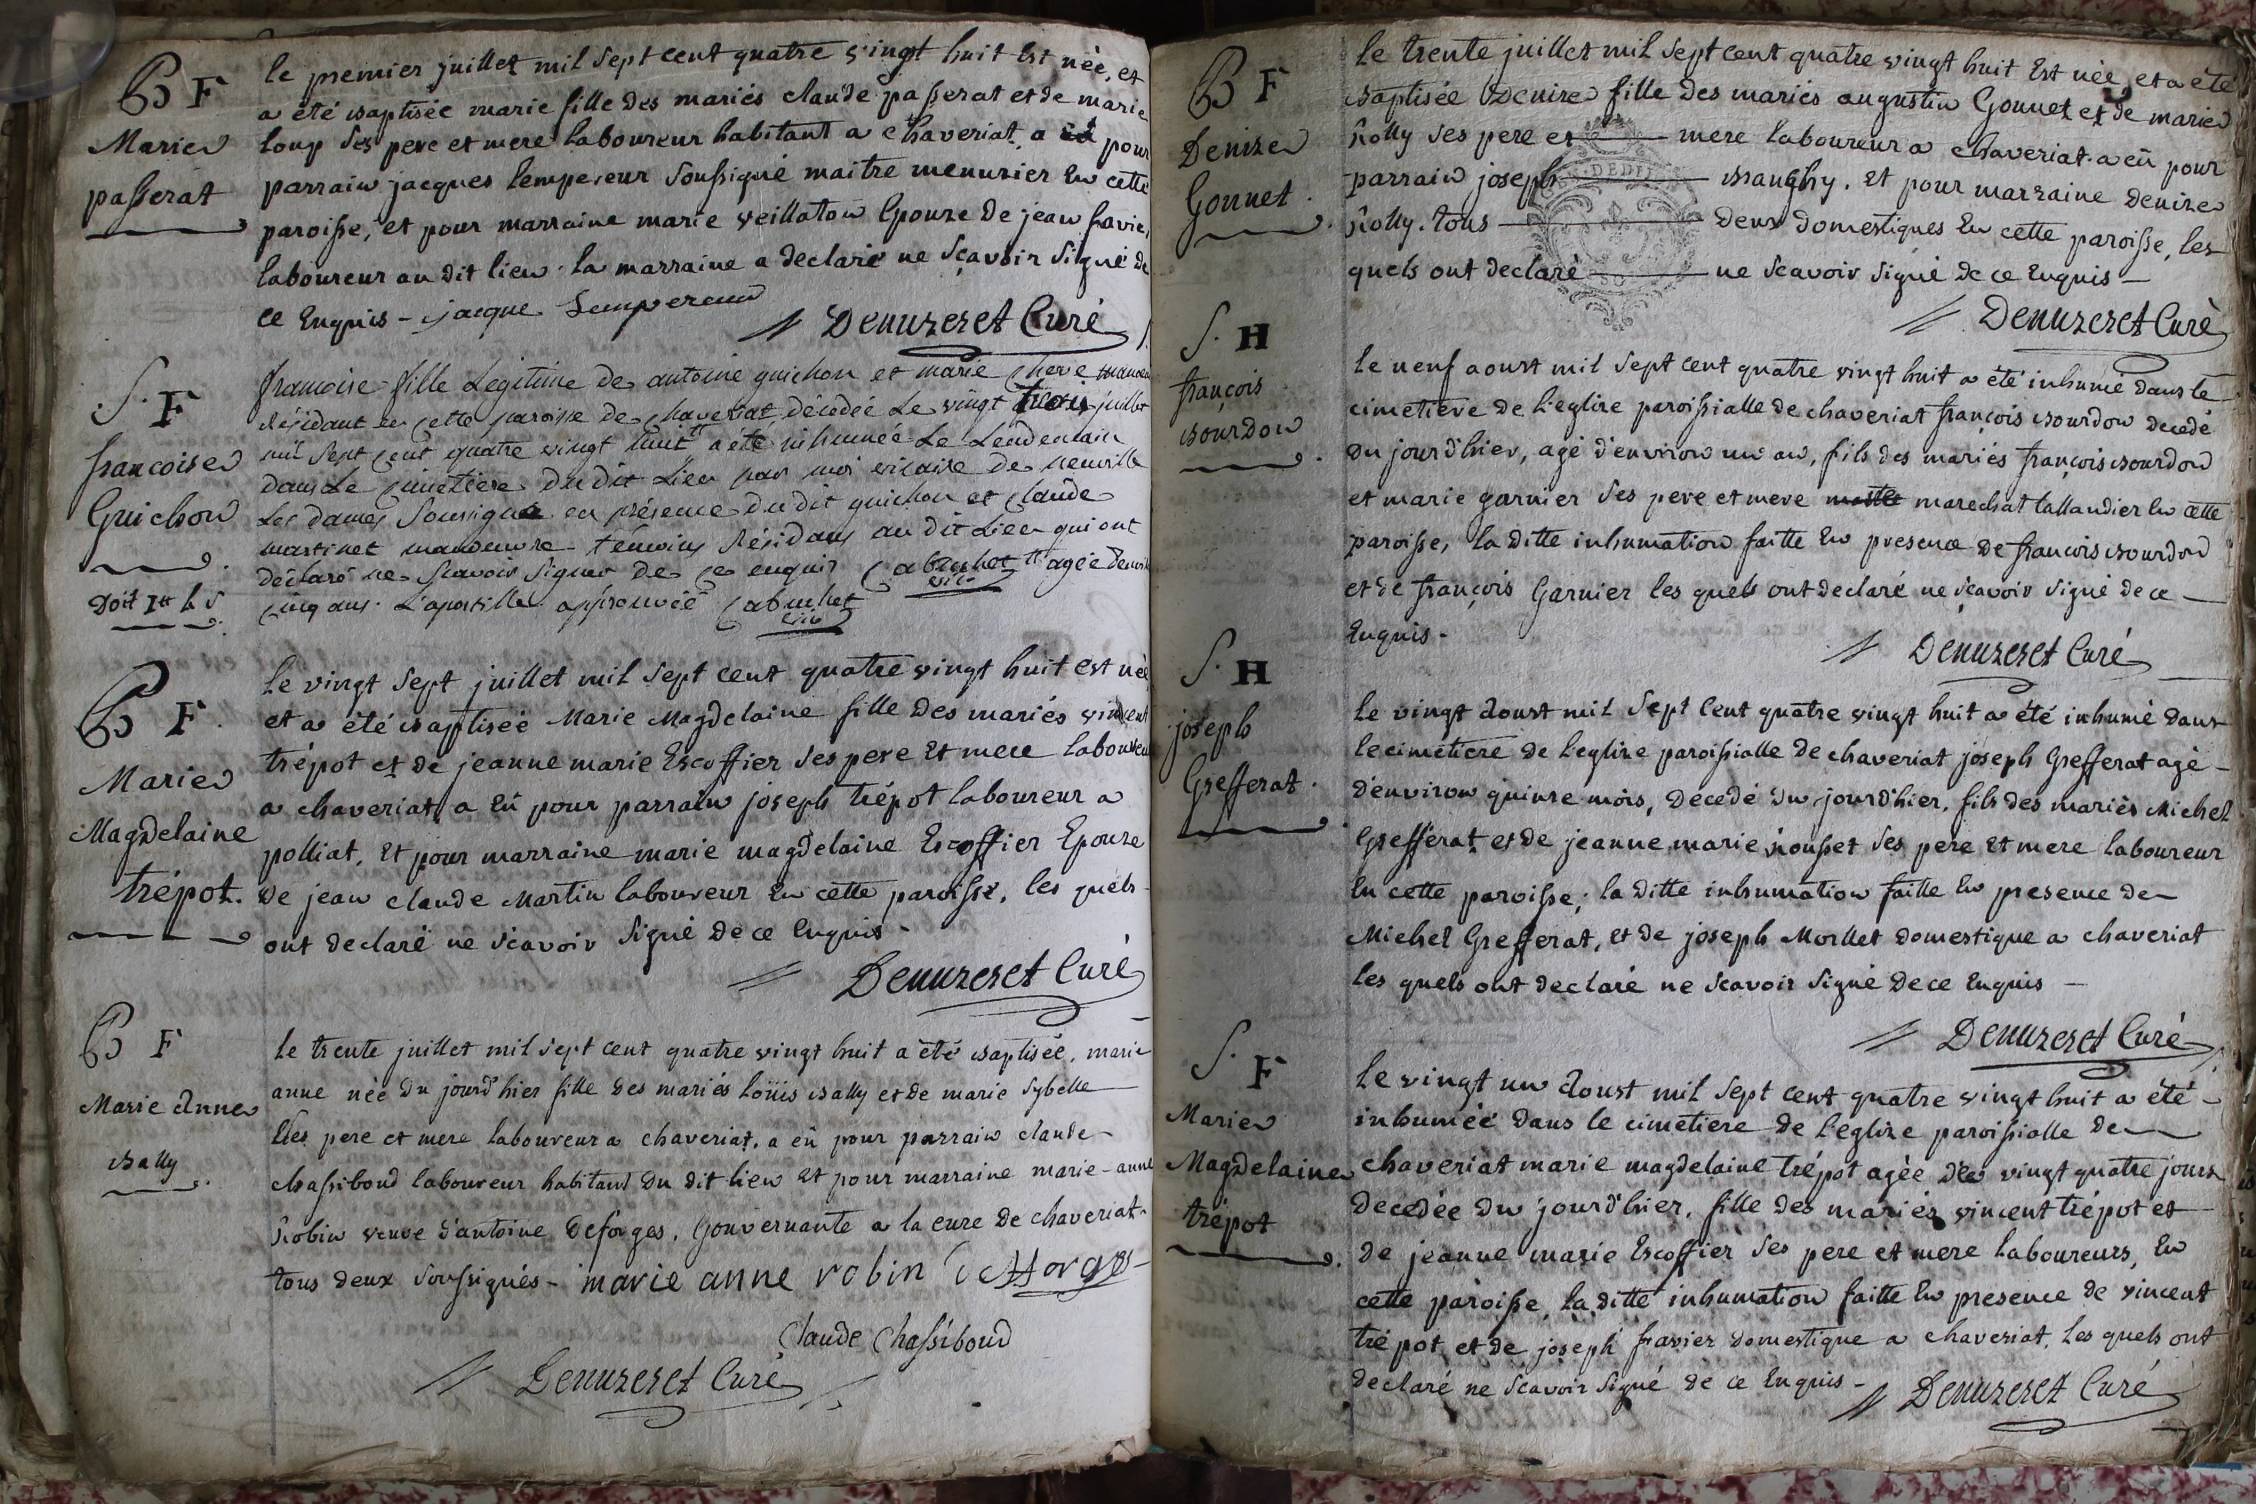 B F
Marie
passerat
le premier juillet mil sept cent quatre vingt huit Est née, et
a été baptisée marie fille des mariés claude passerat et de marie
loup ses pere et mere laboureur habitant a chaveriat, a pour
parrain jacques lempereur soussigné maitre menuzier En cette
paroisse, et pour marraine marie veillaton Epouze de jean favier
laboureur au dit lieu. la marraine a declaré ne sçavoir signé de
ce Enquis - jacque Lempereur
Denuzeret Curé
S. F
francoise
Guichon
Doit 1tt h s
francoise fille Légitime de antoine guichon et marie
Résidant en cette paroisse de chaveriat, décédée Le vingt trois juillet
mil sept cent quatre vingt huit tt a été inhumée Le Lendemain
dans Le cimetiere Du dit Lieu par moi vicaire de neuville
Les dames soussigné en présence Du dit guichon et claude
martinet manoeuvre témoins Résidans au dit Lieu qui ont
déclaré ne scavoir signer de ce enquis Cabuchet tt agée d'environ
vic.
cinq ans. L'apostille approuvée Cabuchet
vic.
B F.
Marie
Magdelaine
trépot.
Le vingt sept juillet mil sept cent quatre vingt huit est née
et a été baptiseé Marie Magdelaine fille des mariés vincent
trépot et de jeanne marie Escoffier ses pere Et mere laboureur
a chaveriat, a Eû pour parrain joseph trépot laboureur a
polliat, Et pour marraine marie magdelaine Escoffier Epouze
de jean claude Martin laboureur En cette paroisse, les quels
ont declaré ne scavoir signé de ce Enquis -
Denuzeret Curé
B F
Marie Anne
bally
le trente juillet mil sept cent quatre vingt huit a été baptisée, marie
anne née du jourd'hier fille des mariés loüis bally et de marie sybelle
ses pere et mere laboureur a chaveriat, a eû pour parrain claude
chassiboud laboureur habitant du dit lieu Et pour marraine marie-anne
Robin veuve d'antoine deforges, Gouvernante a la cure de chaveriat
tous deux soussignés - marie anne robin
Claude Chassiboud
Denuzeret Curé
B F
Denize
Gonnet.
le trente juillet mil sept cent quatre vingt huit Est née, et a été
baptisée Denize fille des mariés augustin Gonnet et de marie
Rolly ses pere et mere laboureur a chaveriat. a eû pour
parrain joseph, Et pour marraine denize
Rolly. tous deux domestiques En cette paroisse, les
quels ont declaré ne scavoir signé de ce Enquis -
Denuzeret Curé
S. H
françois
bourdon
le neuf aoust mil sept cent quatre vingt huit a été inhumé dans le
cimetiere de l'eglize paroissialle de chaveriat françois bourdon decedé
du jourd'hier, agé d'environ un an, fils des mariés françois bourdon
et marie garnier ses pere et mere marechal tallandier En cette
paroisse, la ditte inhumation faitte En presence de francois bourdon
et de françois Garnier les quels ont declaré ne sçavoir signé de ce
Enquis -
Denuzeret Curé
S. H
joseph
Grefferat.
le vingt Aoust mil sept cent quatre vingt huit a été inhumé dans
le cimetiere de l'eglize paroissialle de chaveriat joseph Grefferat agé
d'environ quinze mois, decedé du jourd'hier, fils des mariés Michel
Grefferat et de jeanne marie ses pere Et mere laboureur
En cette paroisse; la ditte inhumation faitte En presence de
Michel Grefferat, Et de joseph Morllet domestique a chaveriat
les quels ont declaré ne scavoir signé de ce Enquis
Denuzeret Curé
S. F
Marie
Magdelaine
trépot
le vingt un Aoust mil sept cent quatre vingt huit a été
inhumée dans le cimetiere de l'eglize paroissialle de
chaveriat marie magdelaine trépot agée de vingt quatre jours
decedée du jourd'hier, fille des mariés vincent trépot et
de jeanne marie Escoffier ses pere et mere laboureurs, En
cette paroisse, la ditte inhumation faitte En presence de vincent
trépot et de joseph favier domestique a chaveriat, les quels ont
declaré ne scavoir signé de ce Enquis -
Denuzeret Curé